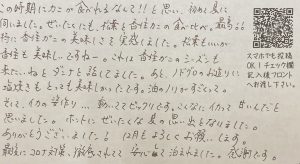 この時期にカニが食べれるなんて!!と思い、初めて夏に
伺いました。ぜいたくにも、松葉と香住ガニの食べ比べ。最高です。
特に香住ガニの美味しさに実感しました。松葉もいいが
香住も美味しいですねー。これは香住ガニのシーズンも
来たいねとダンナと話してました。あと、ノドグロのお造りに
塩焼きもとっても美味しかったです。油のノリがすごいって。
そして、イカの姿作り… 動いててビックリです。こんなにイカって甘いんだと
思いました。ホントにぜいたくな夏の思い出となりました。
ありがとうございました!12月もよろしくお願いします。
最後にコロナ対策、徹底されてて安心して泊まれました。感謝です。
スマホでも投稿
OK!チェック欄
記入後フロント
へお渡し下さい。